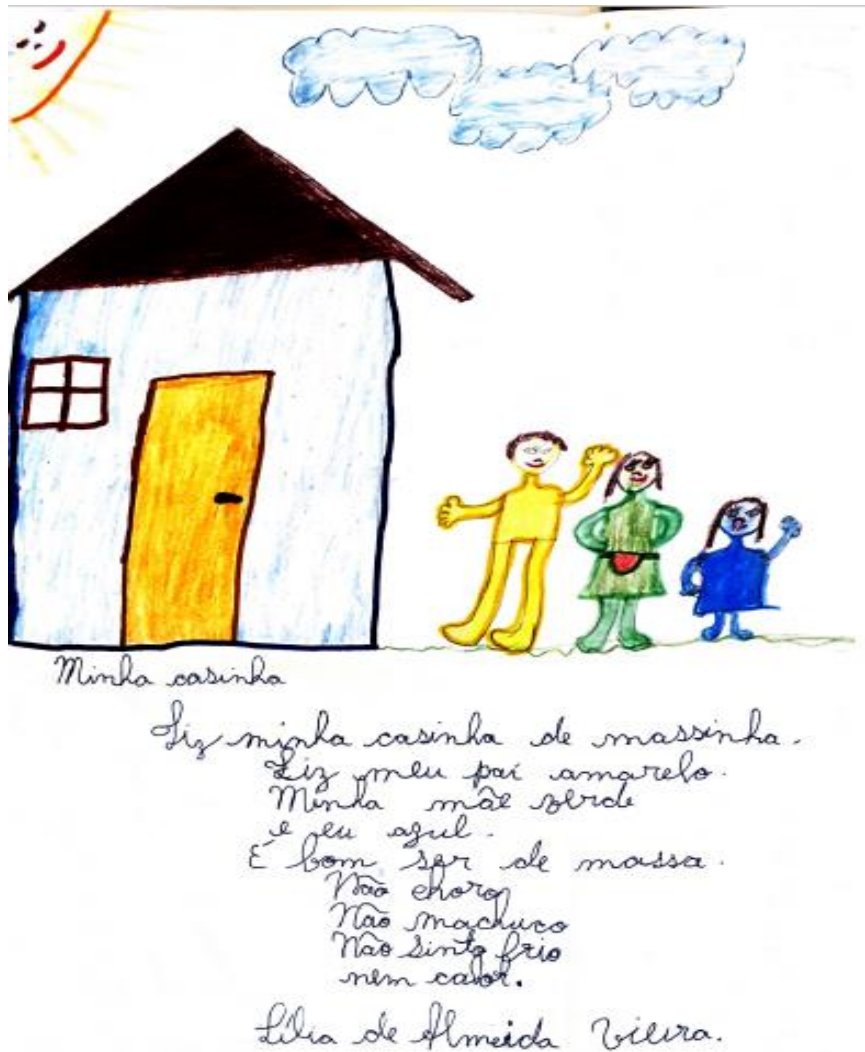 Minha casinha
Fiz minha casinha de massinha.
Fiz meu pai amarelo.
Minha mãe verde
e eu azul.
É bom ser de massa.
Não choro
Não machuco
Não sinto frio
nem calor.
Lilia de Almeida Vieira.